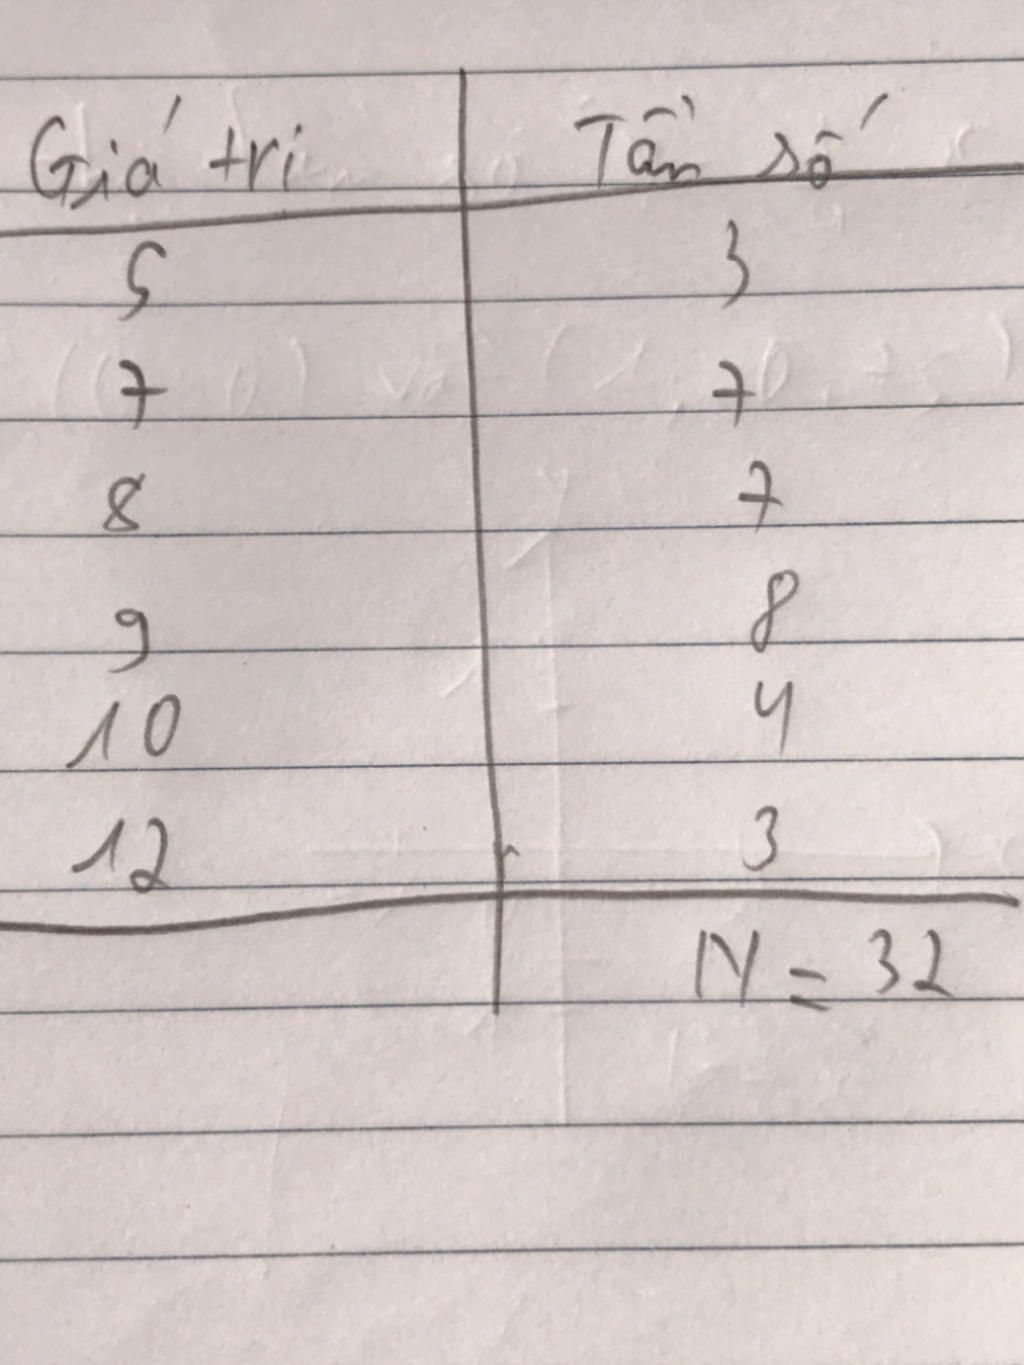 Giá tri Tần số
5 3
7 7
8 7
9 8
10 4
12 3
N = 32